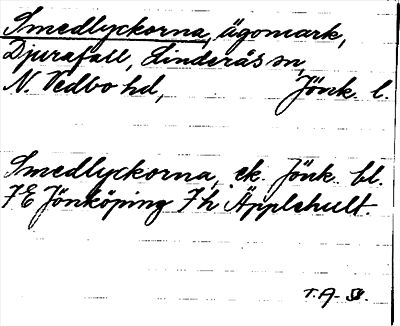 Smedlyckorna, ägomark,
Djurafall, Linderås sn,
N. Vedbo hd, Jönk. l.
Smedlyckorna, ek. Jönk. bl.
7E Jönköping 7h Äpplehult.
T.A-